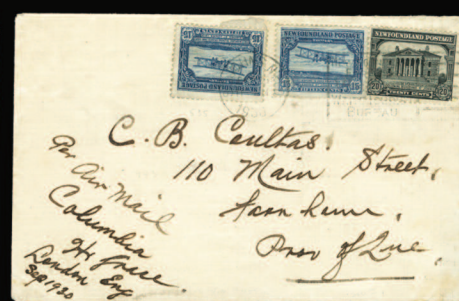 NEWFOUNDLAND POSTAGE
NEWFOUNDLAND POSTAGE
NEWFOUNDLAND POSTAGE
15
15
20
20
TWENTY CENTS
C. B. Coultas.
110 Main Street,
Prov of Que,
Per Air Mail
Columbia
Hr Grace.
London Eng
Sep 1930